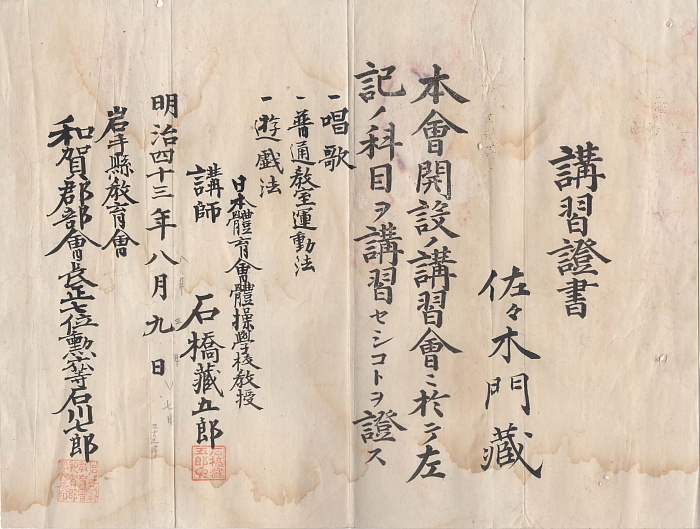 講習證書
佐々木門藏
本會開設ノ講習會ニ於テ左
記ノ科目ヲ講習セシコトヲ證ス
一唱歌
一普通教室運動法
一遊戯法
日本體育會體操學校教授
講師 石橋藏五郎
明治四十三年八月九日
岩手縣教育會
和賀郡部會長正七位勳六等石川七郎